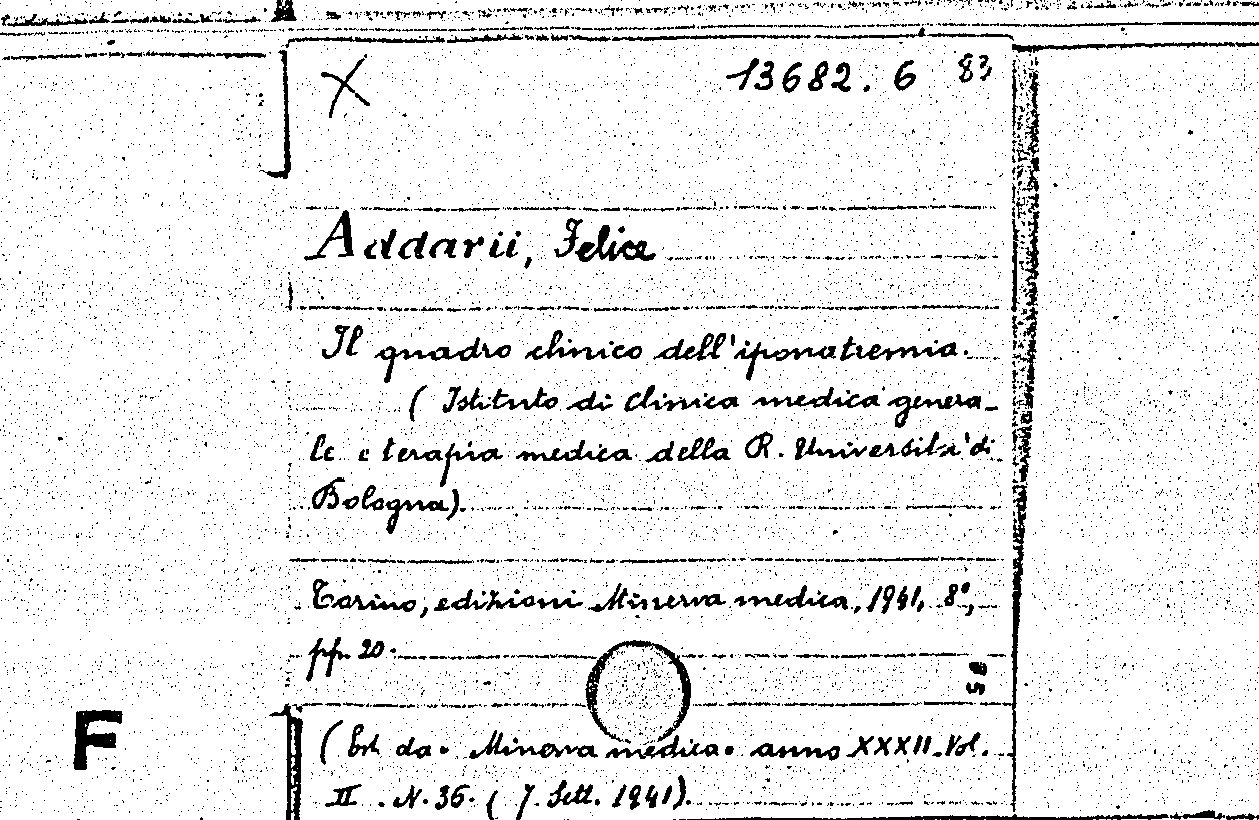 X 13682. 6 83
Addarii, Felice
Il quadro clinico dell'iponatremia.
( Istituto di Clinica medica genera-
le e terapia medica della R. Università di
Bologna).
Torino, edizioni Minerva medica, 1941, 8°,
pp. 20.
58
F
( Est. da " Minerva medica " anno XXXII. Vol.
II . N. 36. ( 7. Sett. 1941).